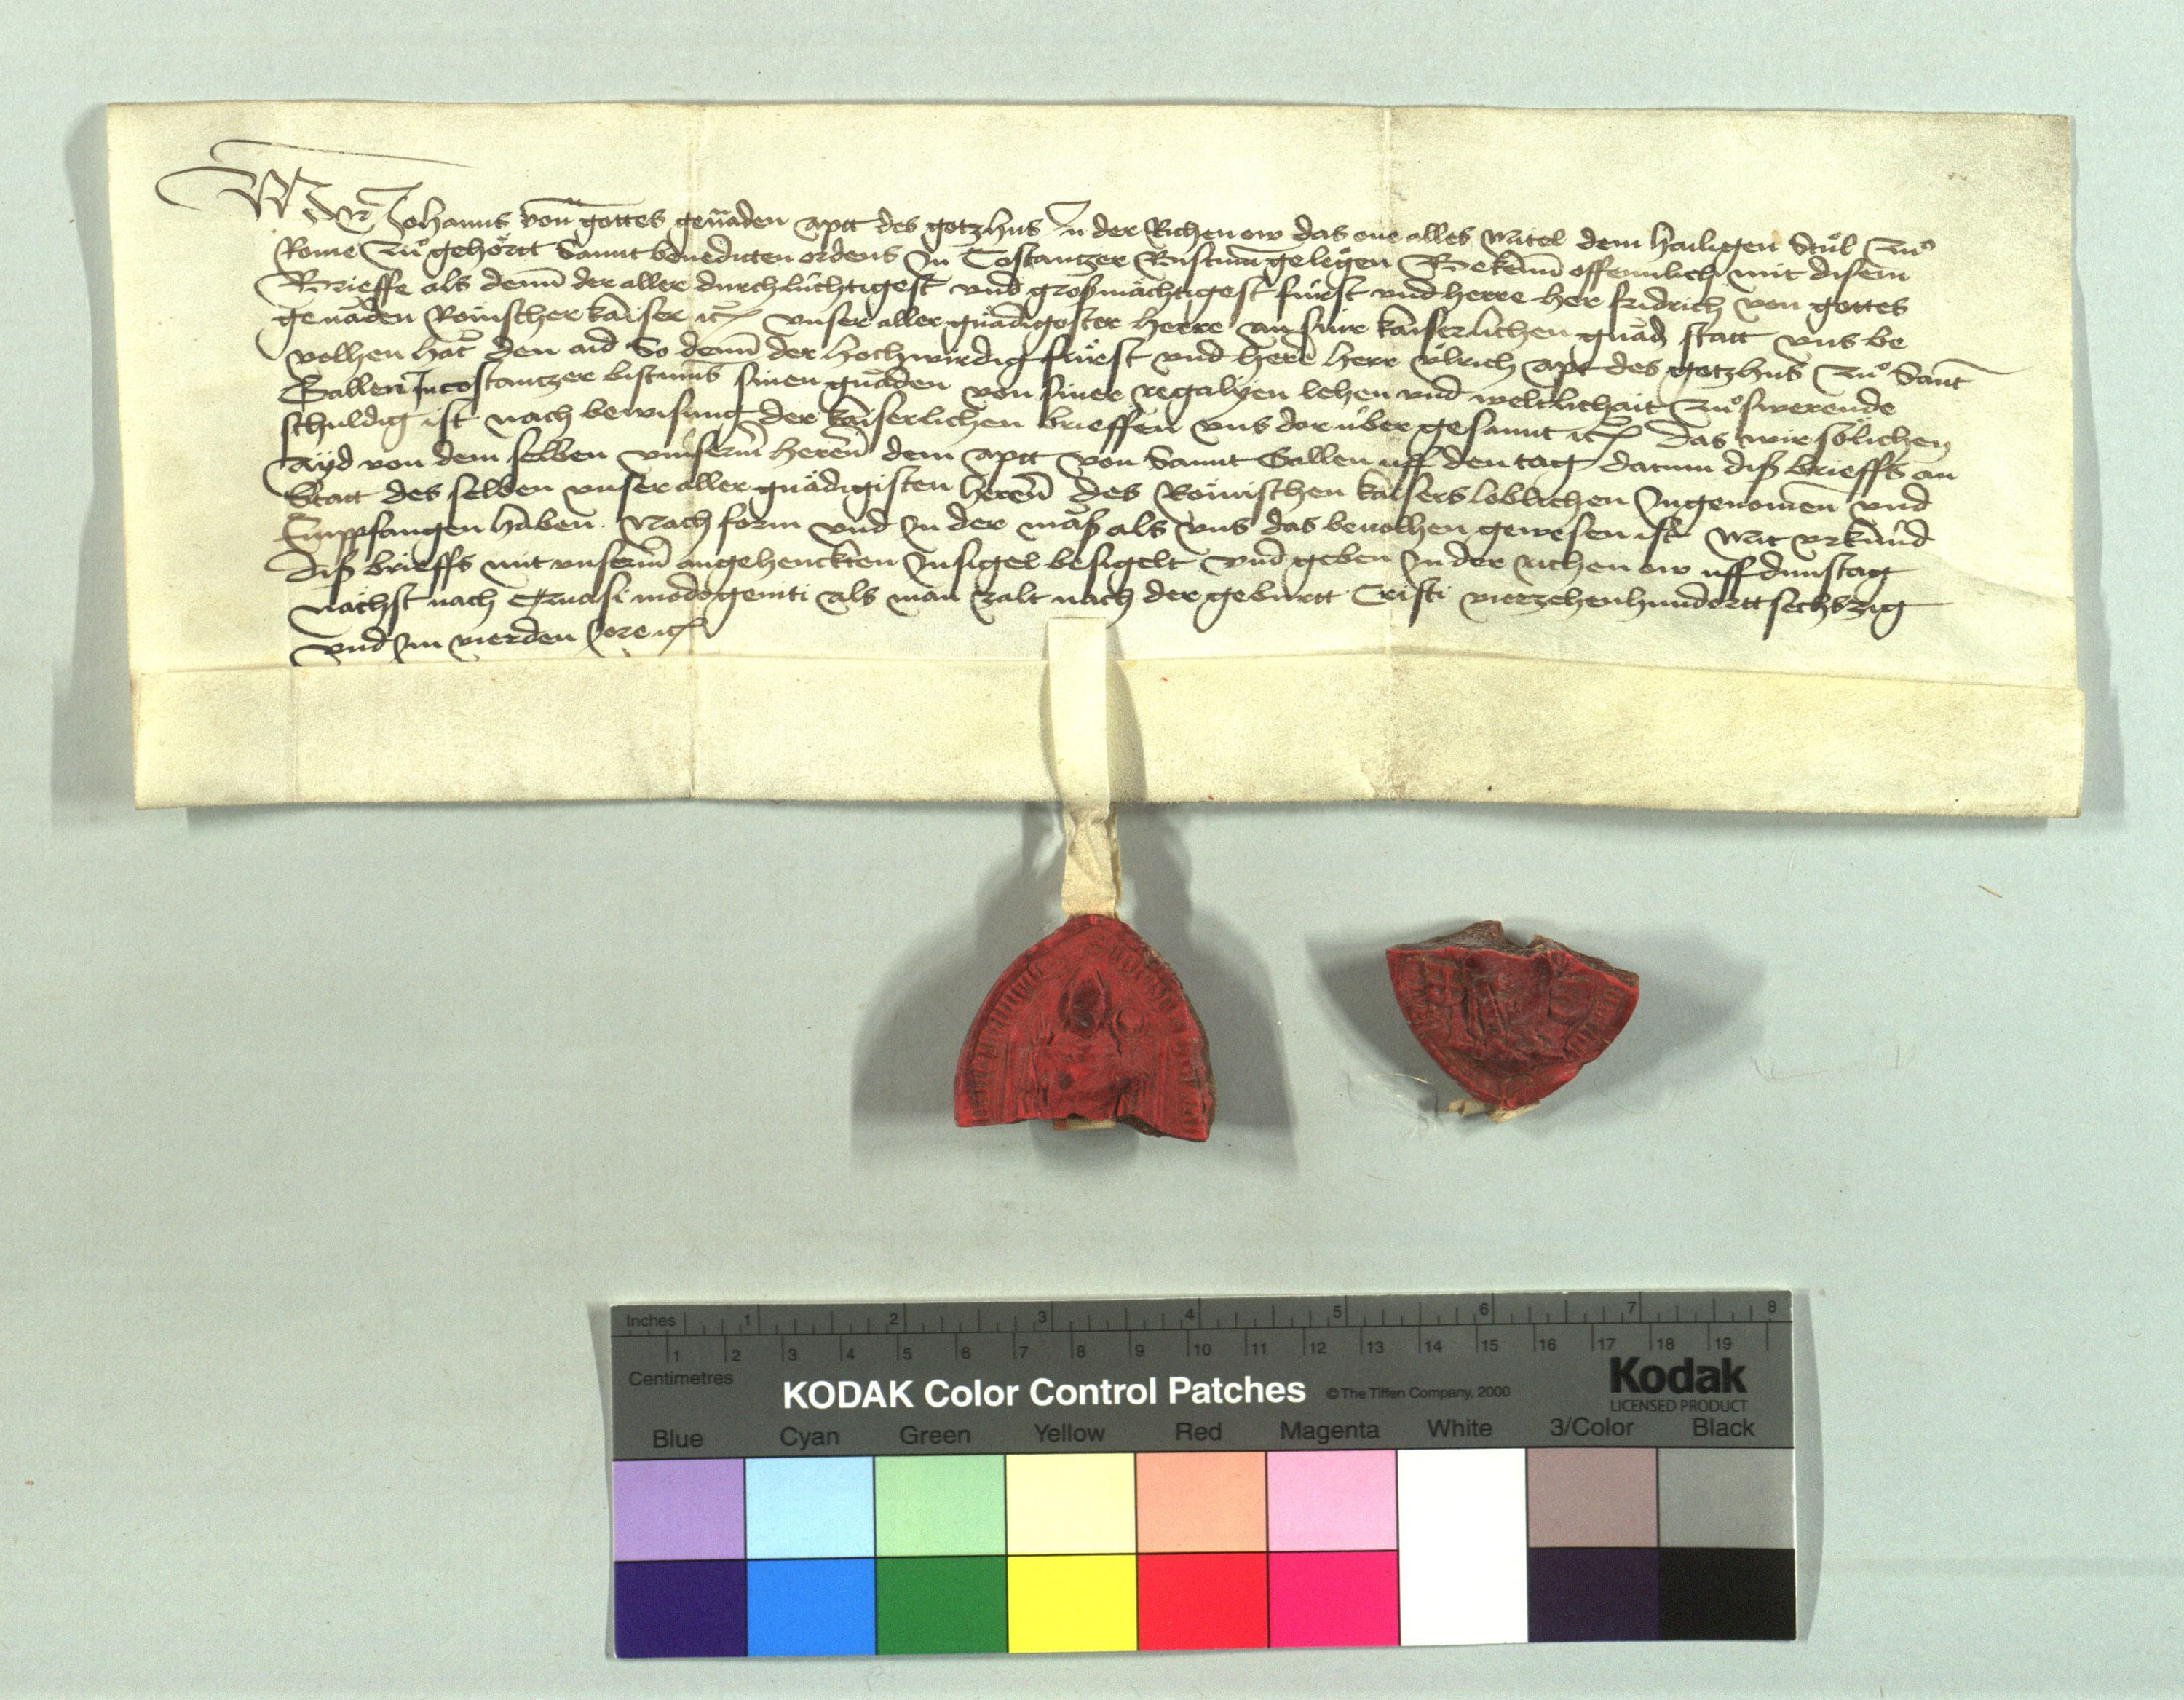 Wir Johanns von gottes genaden aptt des gotzhus In der Richenow das one alles mitel dem hailigen Stůl zuͦ
Rome zuͦ gehörtt Sannt benedicten ordens In Costantzer Bistum gelegen Bekenn offennlich mit disem
Brieffe als denn der aller durchlüchtigest vnd grosmächtigest fürst vnd herre her fridrich von gottes
genaden Römscher kaiser ꝛc vnser aller gnädigoster herre an siner kaiserlichen gnäd statt vns be
volhen hat den aid So denn der hochwirdig fürst vnd here herr ulrich apt des gotzhus zuͦ Sant
Gallen In costantzer bistums sinen gnaden von siner regalyen lehen vnd weltlichait zuͦ swerende
schuldig ist nach bewisung der kaiserlichen brieffen vns dar über gesannt ꝛc das wir sölichen
Ayd von dem selben vnserm heren dem aptt von Sannt Gallen uff den tag datum diß brieffs an
Statt des selben vnser aller gnädigisten heren des Römischen kaisers loblichen Ingenomen vnd
Emppfangen haben. Nach form vnd In der mäß als vns das beuolhen gewesen ist Mit vrkünd
diß brieffs mit vnserm angehenckten Insigel besigelt vnd geben In der richen ow uff dunstag
nächst nach Quasi modo geniti als man zalt nach der geburtt Cristi vierzehenhundertt sechtzig
vnd Im vierden Jore ꝛc
Inches 1 2 3 4 5 6 7 8
1 2 3 4 5 6 7 8 9 10 11 12 13 14 15 16 17 18 19
Centimetres
KODAK Color Control Patches © The Tiffen Company, 2000 Kodak
LICENSED PRODUCT
Blue Cyan Green Yellow Red Magenta White 3/Color Black